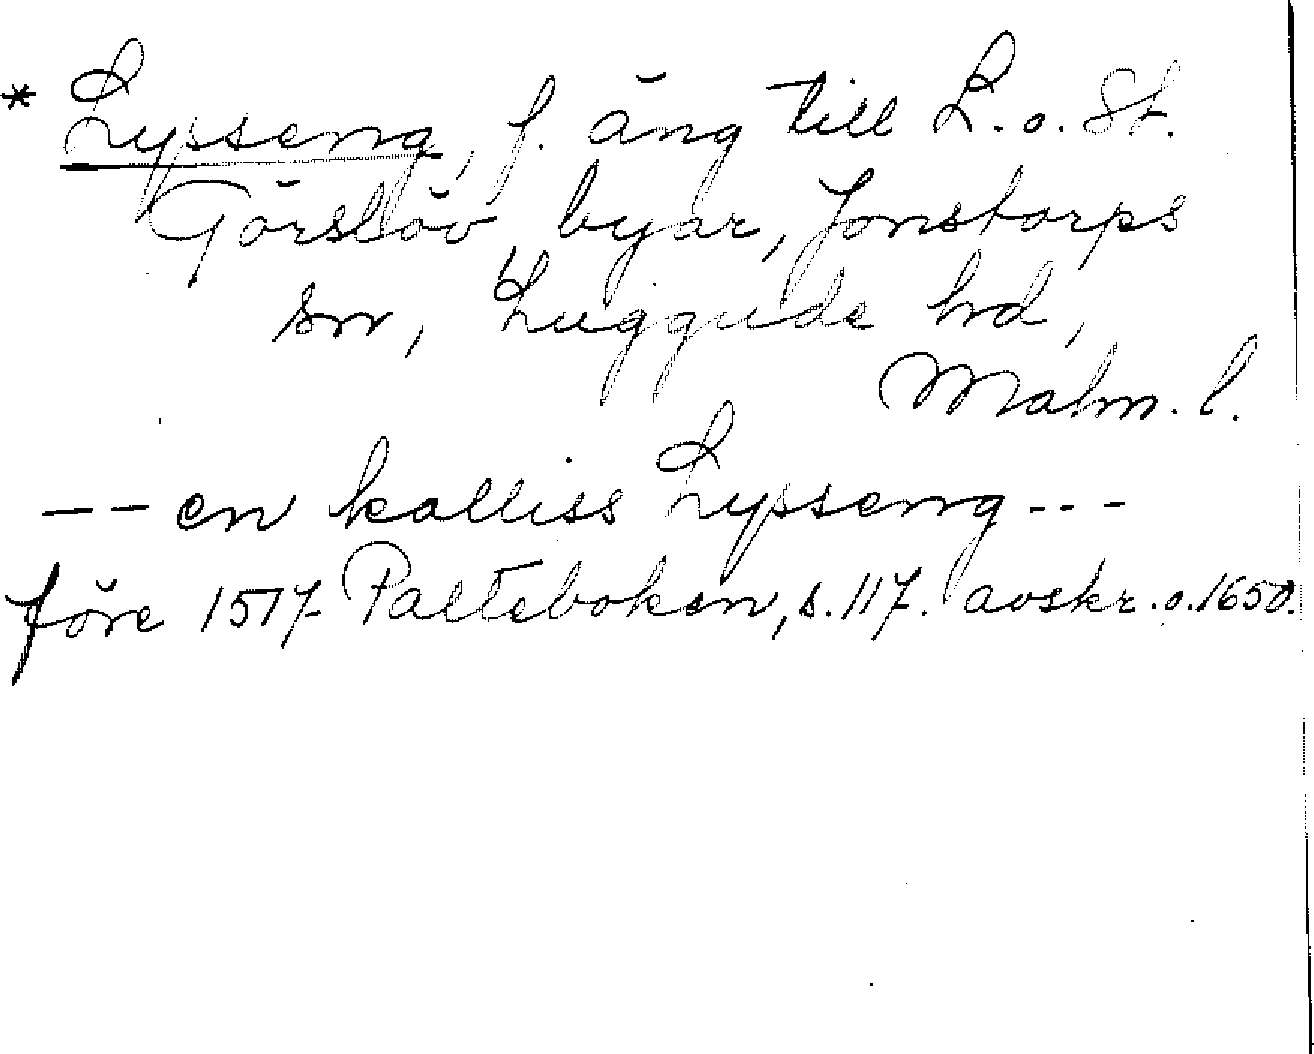 * Lysseng, f. äng till L. o. St.
Görslöv, byar, Jonstorps
sn, Luggude hd,
Malm. l.
-- en kalliss Lysseng ---
före 1517 Palteboken, s. 117. avskr. o. 1650.